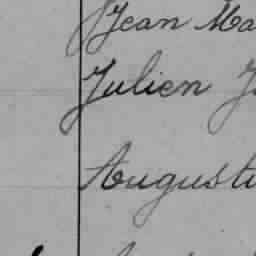 Jean Ma
Julien J
Augusti